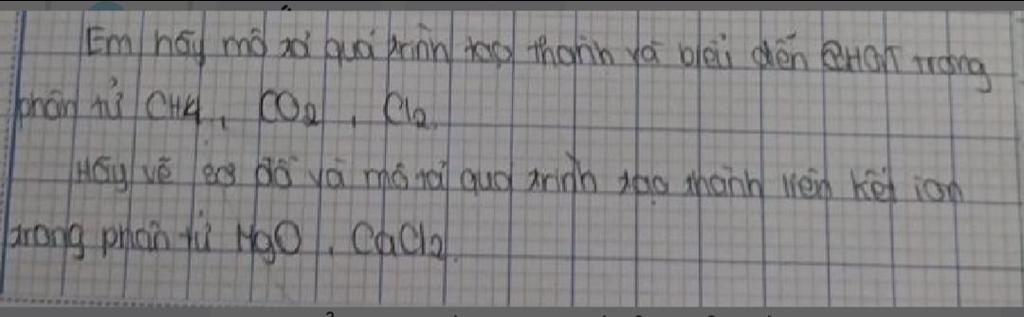 Em hãy mô tả quá trình tạo thành và biểu diễn LKCHT trong
phân tử CH4, CO2, Cl2.
Hãy vẽ sơ đồ và mô tả quá trình tạo thành liên kết ion
trong phân tử MgO, CaCl2.